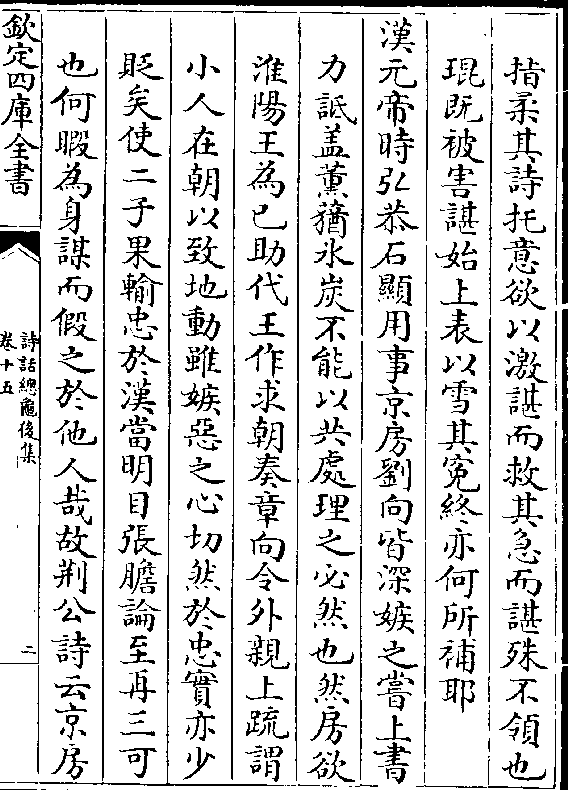 指柔其詩托意欲以激諶而救其急而諶殊不領也
琨既被害諶始上表以雪其寃終亦何所補耶
漢元帝時弘恭石顯用事京房劉向皆深嫉之嘗上書
力詆盖薰蕕氷炭不能以共處理之必然也然房欲
淮陽王為已助代王作求朝奏章向令外親上䟽謂
小人在朝以致地動雖嫉惡之心切然於忠實亦少
貶矣使二子果輸忠於漢當明目張膽論至再三可
也何暇為身謀而假之於他人哉故荆公詩云京房
欽定四庫全書
詩話總龜後集
卷十五
二